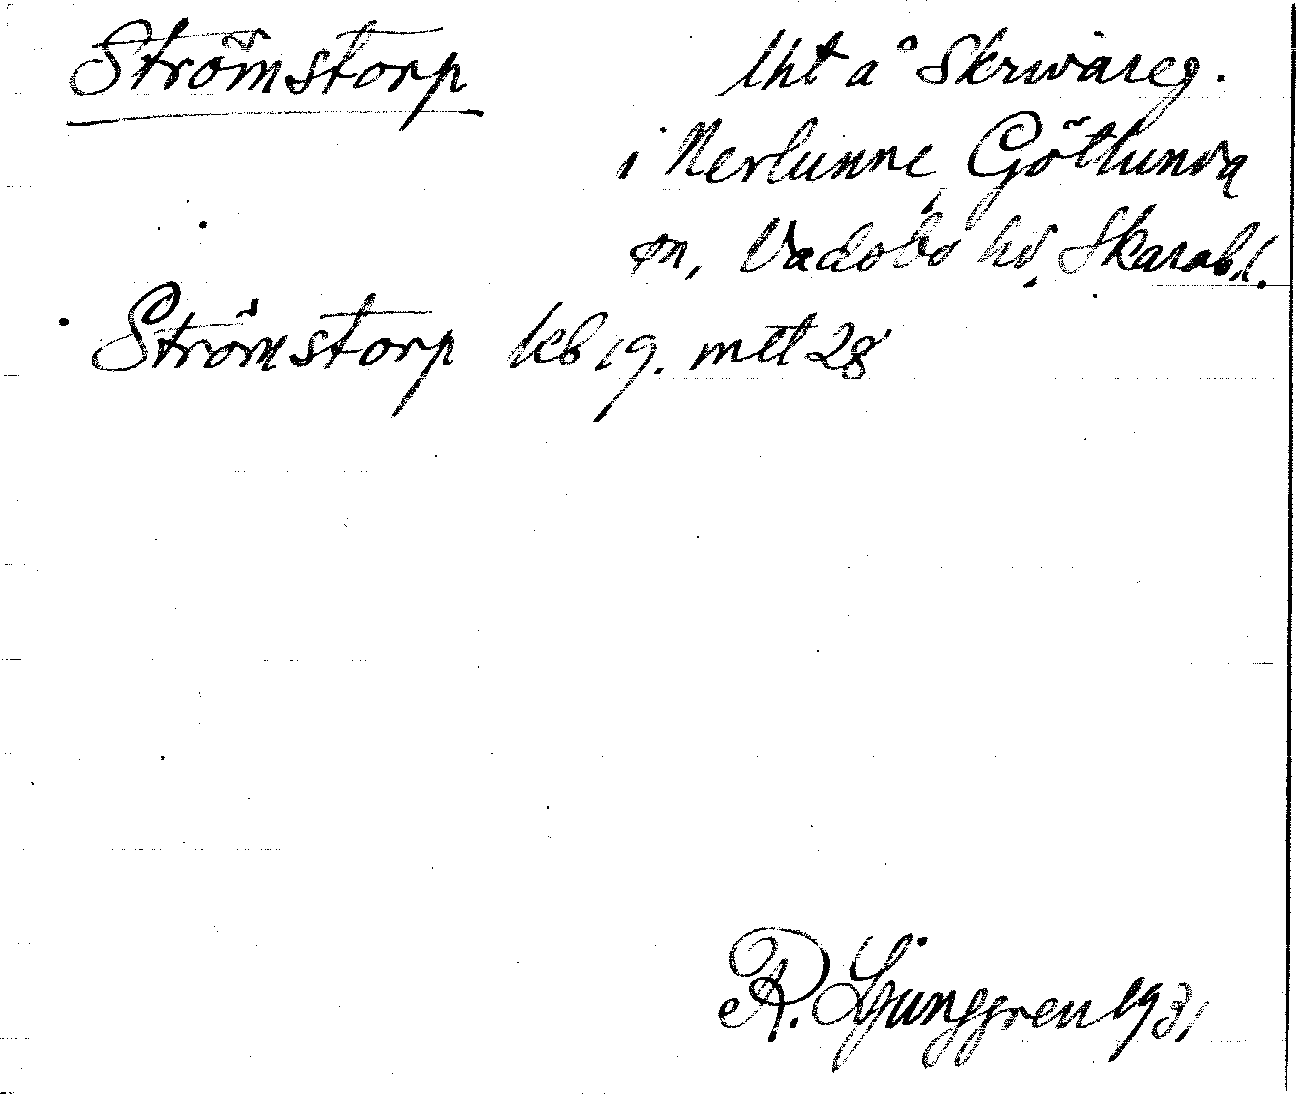 Strömstorp lht å Skrivareg.
i Nerlunne, Götlunda
sn, Vadsbo hd, Skarab.l.
Strömstorp kb 19. mtl 28
R. Ljunggren 1931